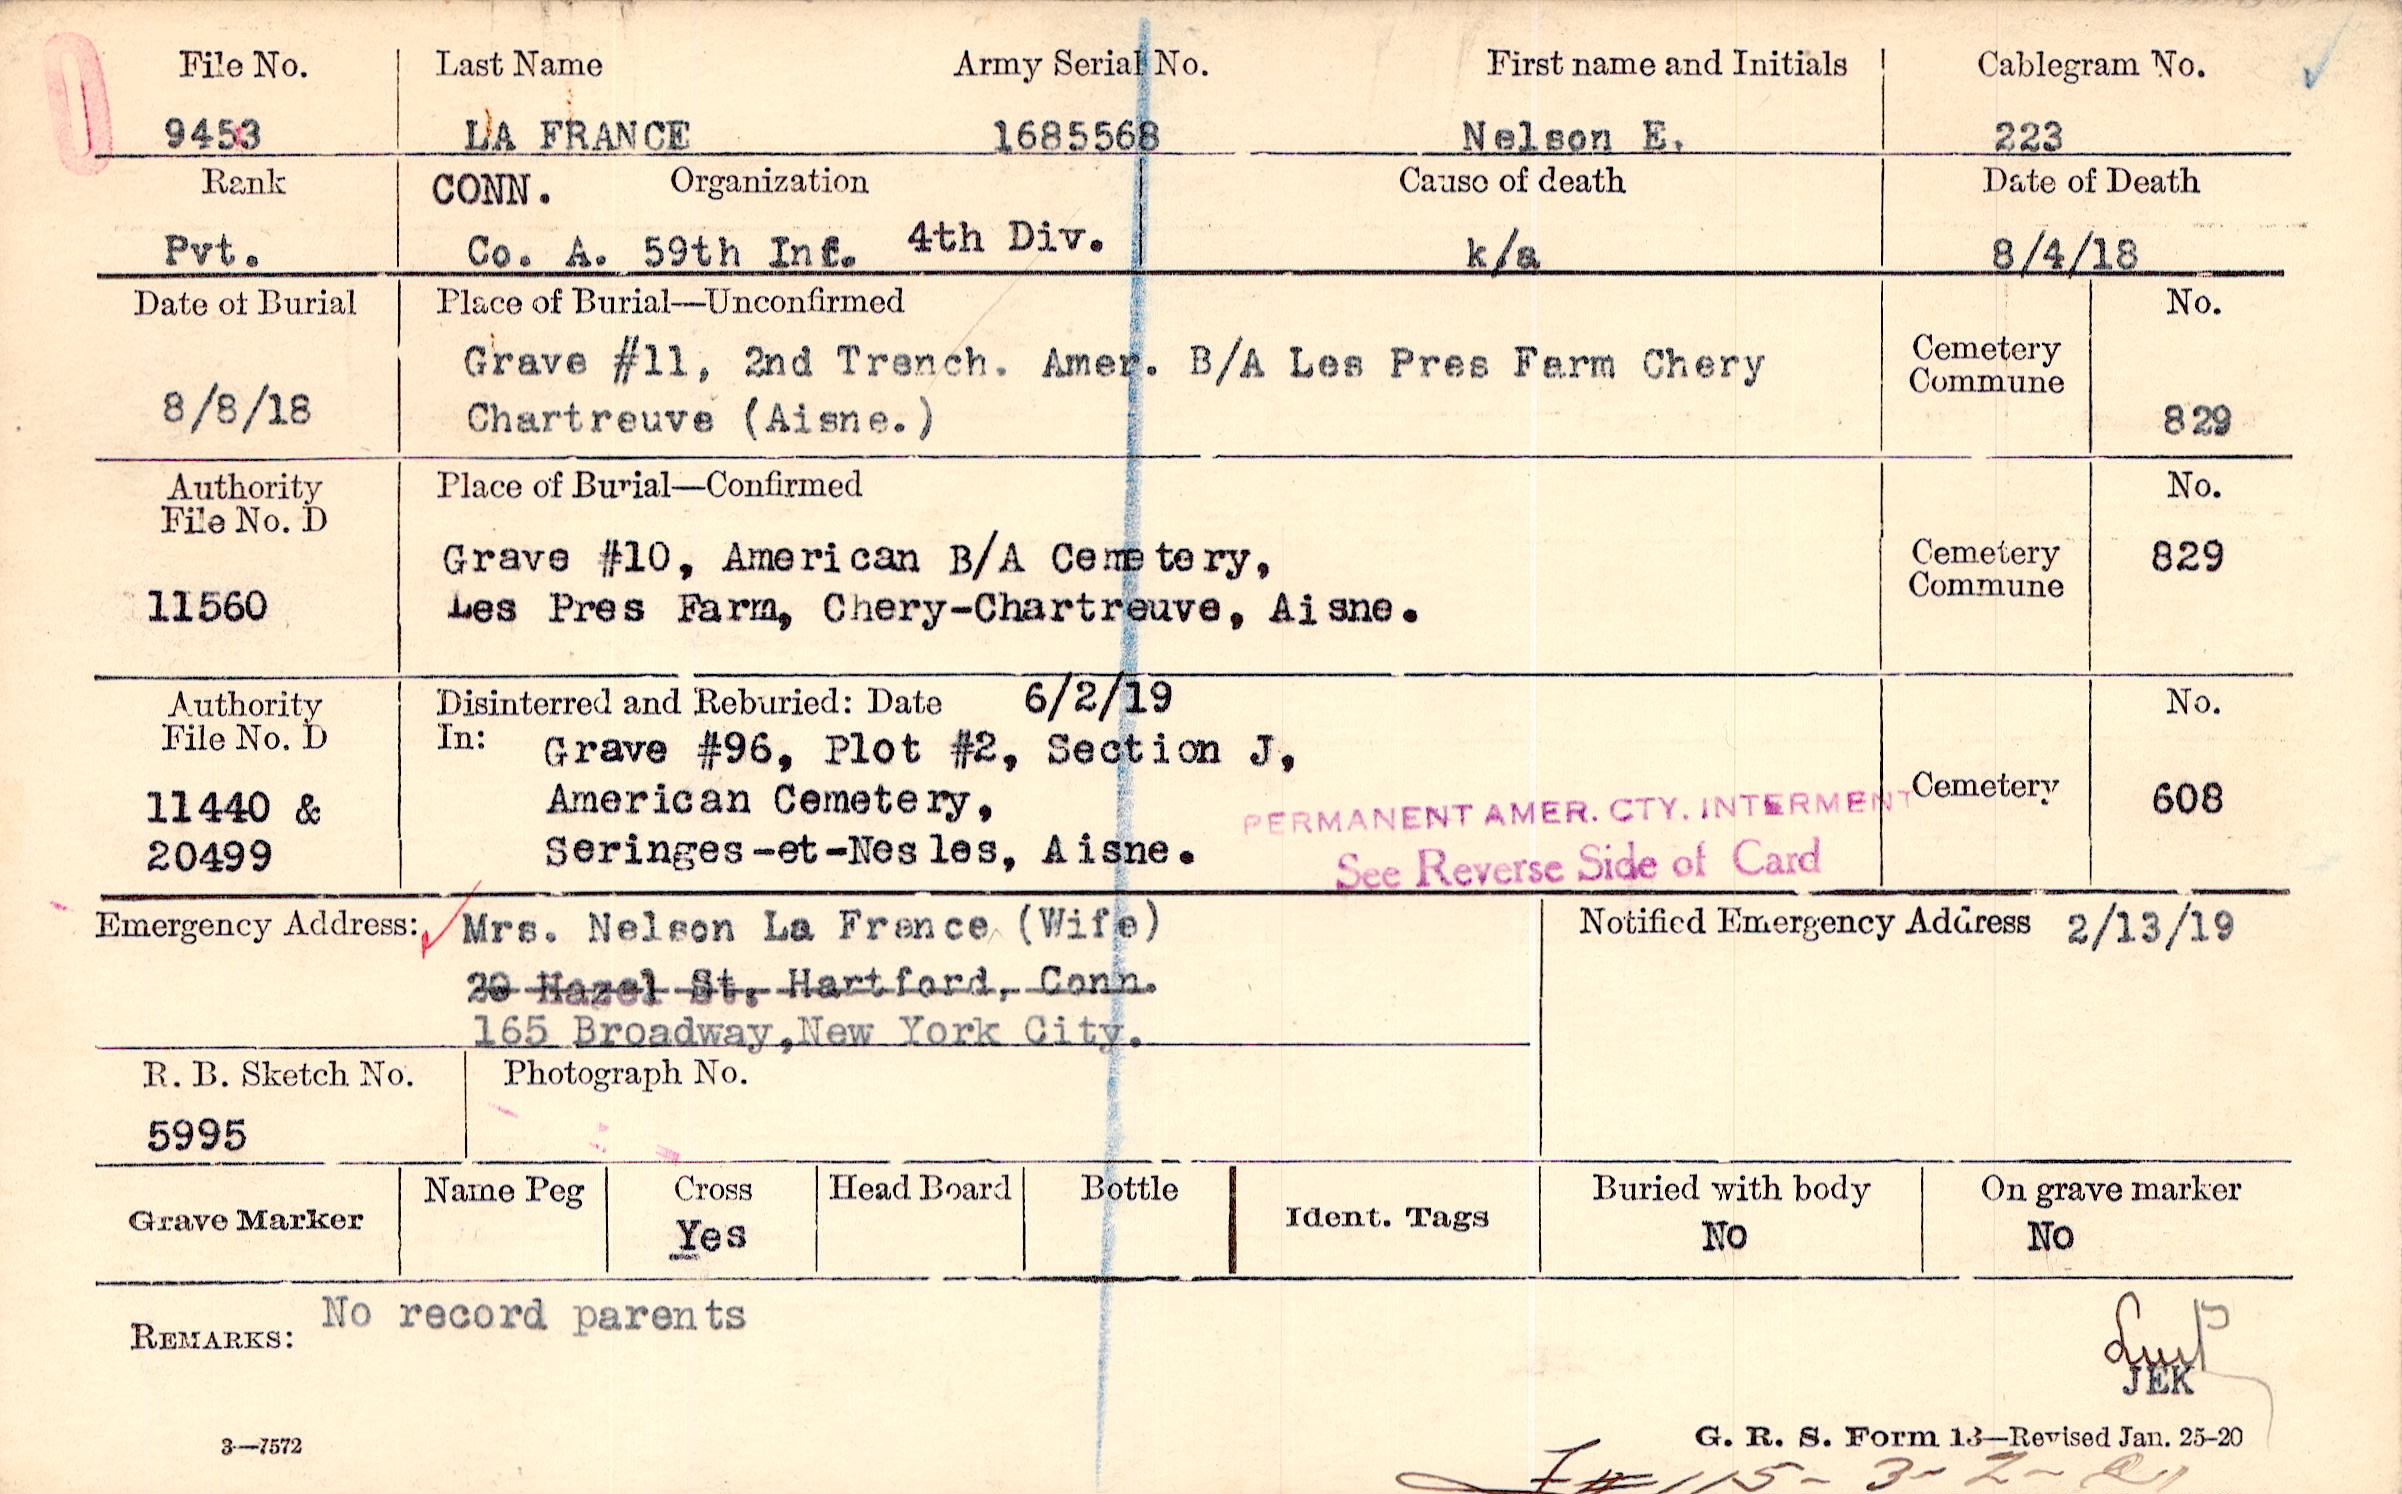 File No. Last Name Army Serial No. First name and Initials Cablegram No.
9453 LA FRANCE 1685568 Nelson E. 223
Rank CONN. Organization Cause of death Date of Death
Pvt. Co. A. 59th Inf. 4th Div. k/a 8/4/18
Date of Burial Place of Burial—Unconfirmed No.
Grave #11, 2nd Trench. Amer. B/A Les Pres Farm Chery Cemetery
Commune
8/8/18 Chartreuve (Aisne.) 829
Authority Place of Burial—Confirmed No.
File No. D
Grave #10, American B/A Cemetery, Cemetery 829
11560 Les Pres Farm, Chery-Chartreuve, Aisne. Commune
Authority Disinterred and Reburied: Date 6/2/19 No.
File No. D In: Grave #96, Plot #2, Section J,
11440 & American Cemetery, PERMANENT AMER. CTY. INTERMENT Cemetery 608
20499 Seringes-et-Nesles, Aisne. See Reverse Side of Card
Emergency Address: Mrs. Nelson La France (Wife) Notified Emergency Address 2/13/19
20 Hazel St. Hartford, Conn.
165 Broadway, New York City.
R. B. Sketch No. Photograph No.
5995
Grave Marker Name Peg Cross Head Board Bottle Ident. Tags Buried with body On grave marker
Yes No No
REMARKS: No record parents
JEK
3—7572 G. R. S. Form 13—Revised Jan. 25-20